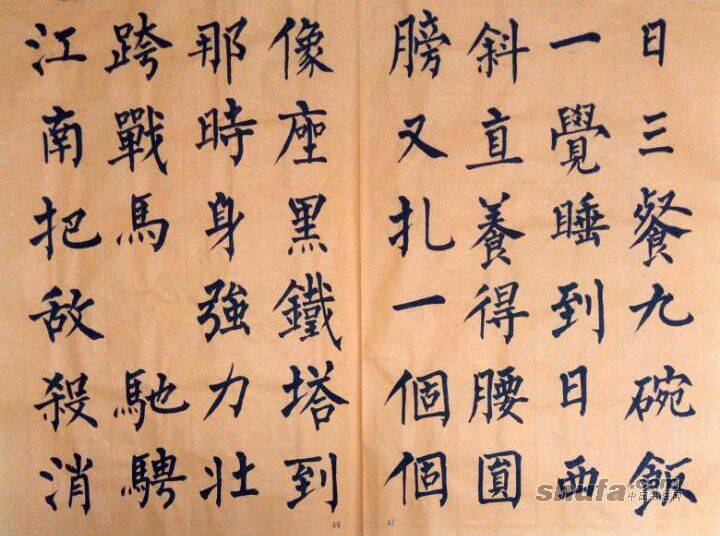 日三餐九碗飯
一覺睡到日西
斜直養得腰圓
膀又扎一個個
像座黑鐵塔到
那時身強力壯
跨戰馬 馳騁
江南把敌殺消
shufa.com
中国书法网